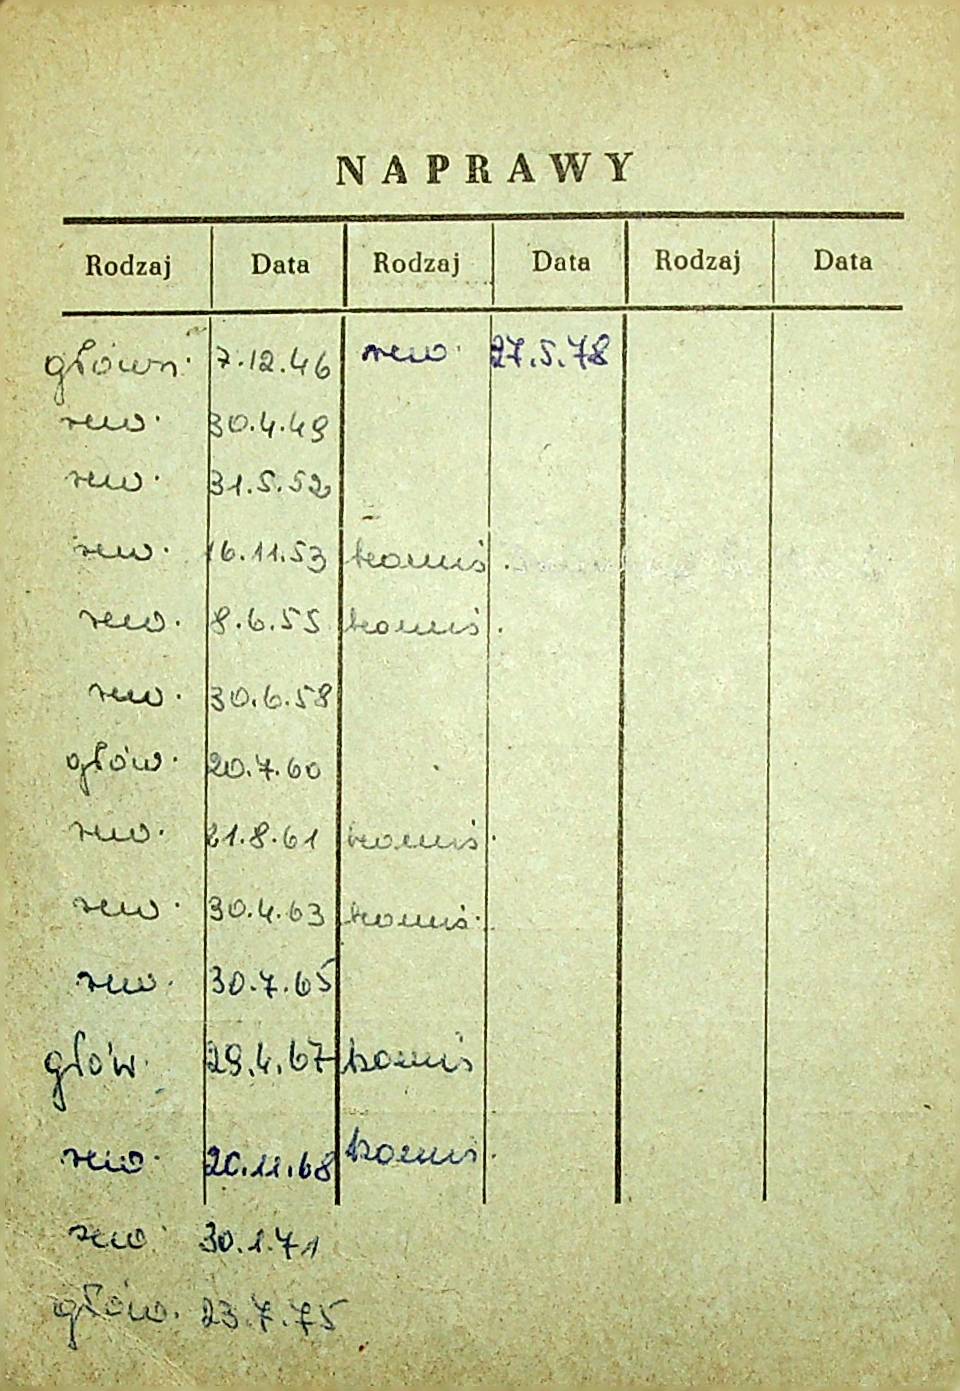 NAPRAWY
Rodzaj Data Rodzaj Data Rodzaj Data
główn. 7.12.46 rew. 27.5.78
rew. 30.4.49
rew. 31.5.52
rew. 16.11.53 komis.
rew. 8.6.55 komis.
rew. 30.6.58
głów. 20.7.60
rew. 21.8.61 komis.
rew. 30.4.63 komis.
rew. 30.7.65
głów. 29.4.67 komis
rew. 20.11.68 komis.
rew. 30.1.71
głów. 23.7.75